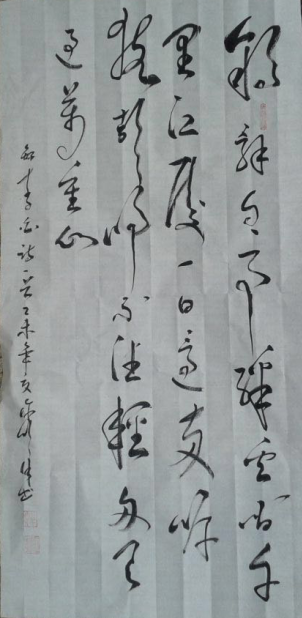 朝辭白帝彩雲間千
里江陵一日還兩岸
猿聲啼不住輕舟已
過萬重山
李白詩一首乙未年